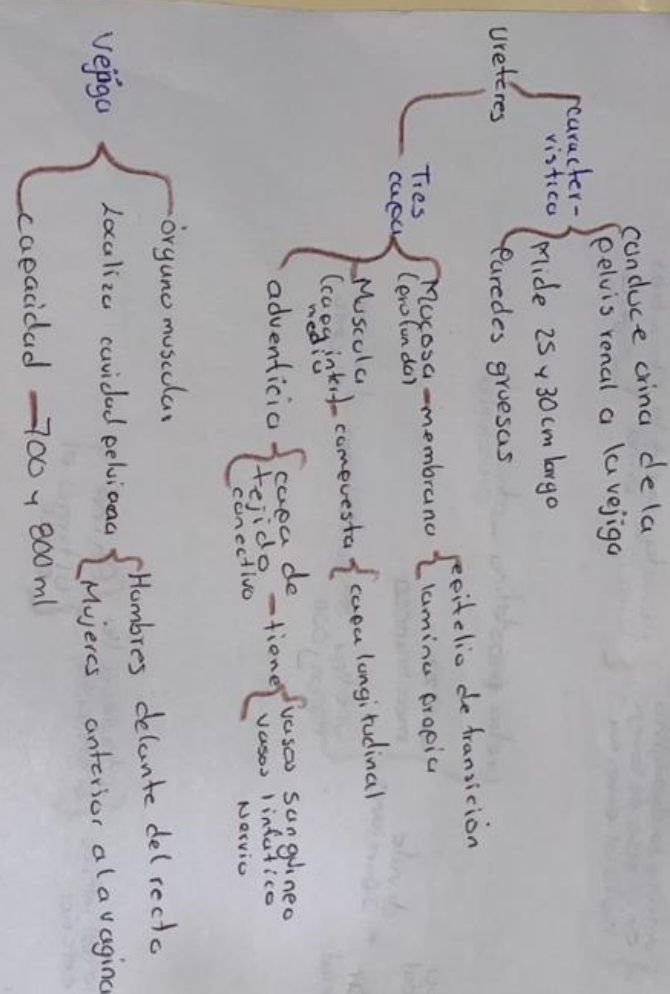 Ureteres
caracter-
rística
conduce orina de la
pelvis renal a la vejiga
Mide 25 y 30 cm largo
Paredes gruesas
Tres
capa
Mucosa - membrana
(profunda)
epitelio de transición
lamina propia
Muscula
(capa inter- compuesta
media
capa longitudinal
adventicia
capa de
tejido - tiene
conectivo
vasos sanguineo
vasos linfatico
Nervio
Vejiga
órgano muscular
Localiza cavidad pelviana
Hombres delante del recto
Mujeres anterior a la vagina
capacidad - 700 y 800 ml